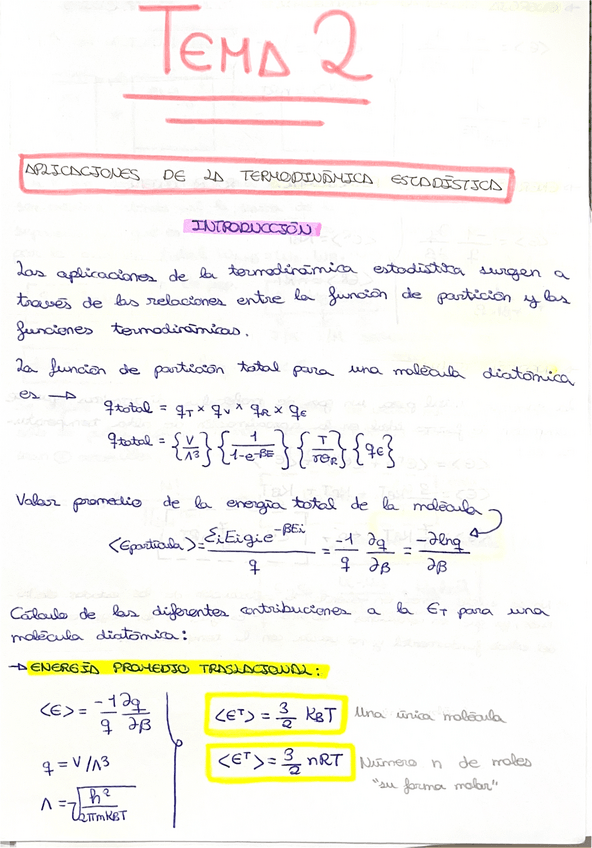 TEMA 2
APLICACIONES DE LA TERMODINÁMICA ESTADÍSTICA
INTRODUCCIÓN
Las aplicaciones de la termodinámica estadística surgen a
través de las relaciones entre la función de partición y las
funciones termodinámicas.
La función de partición total para una molécula diatómica
es → qtotal = qT × qV × qR × qE
qtotal = {V/Λ³} {1/1-e^-βE} {T/σΘR} {qE}
Valor promedio de la energía total de la molécula
<Epartícula> = ΣiEigie^-βEi / q = -1/q ∂q/∂β = -∂lnq/∂β
Cálculo de las diferentes contribuciones a la ET para una
molécula diatómica:
→ ENERGÍA PROMEDIO TRASLACIONAL:
<E> = -1/q ∂q/∂β
<E^T> = 3/2 KBT Una única molécula
q = V/Λ³
<E^T> = 3/2 nRT Número n de moles
"su forma molar"
Λ = √h²/2πmKBT